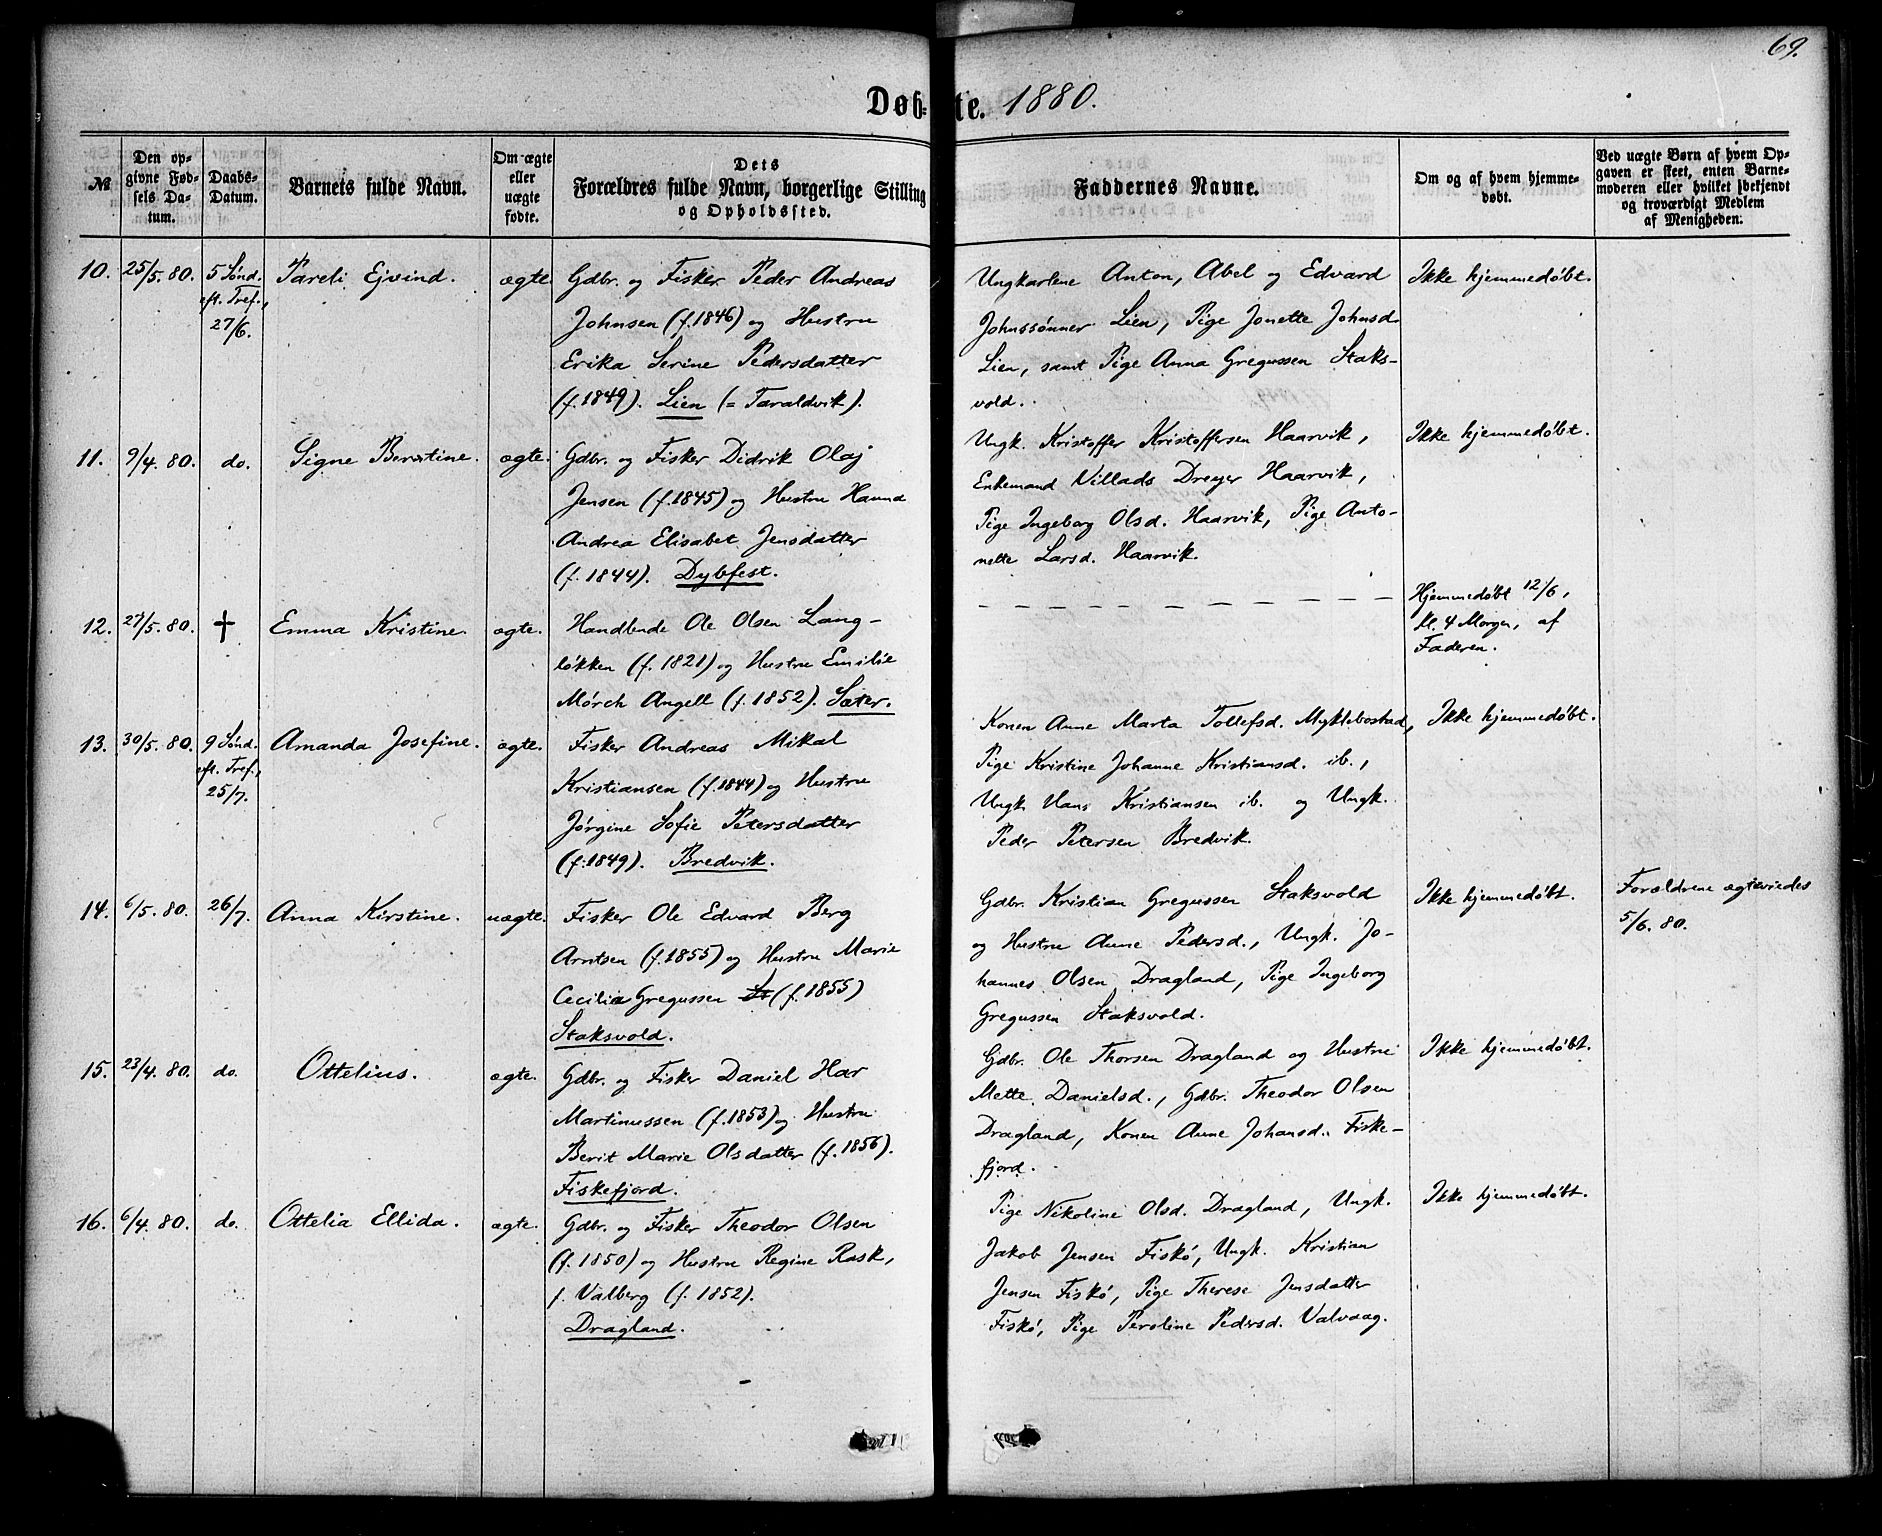 69.
Døb-te. 1880.
№
Den op-
givne Fød-
sels Da-
tum.
Daabs-
Datum.
Barnets fulde Navn.
Om ægte
eller
uægte
fødte.
Dets
Forældres fulde Navn, borgerlige Stilling
og Opholdssted.
Faddernes Navne.
Om og af hvem hjemme-
døbt.
Ved uægte Børn af hvem Op-
gaven er skeet, enten Barne-
moderen eller hvilket bekjendt
og troværdigt Medlem
af Menigheden.
10. 25/5. 80. 5 Sønd.
eft. Tref.,
27/6.
Pareli Ejvind. ægte.
Gdbr. og Fisker Peder Andreas
Johnsen (f. 1846) og Hustru
Erika Serine Pedersdatter
(f. 1849). Lien (= Taraldvik).
Ungkarlene Anton, Abel og Edvard
Johnssønner Lien, Pige Jonette Johnsd.
Lien, samt Pige Anna Gregussen Staks-
vold.
Ikke hjemmedøbt.
11. 9/4. 80. do. Signe Berntine. ægte.
Gdbr. og Fisker Didrik Olaj
Jensen (f. 1845) og Hustru Hanna
Andrea Elisabet Jensdatter
(f. 1844). Dybfest.
Ungk. Kristoffer Kristoffersen Haarvik,
Enkemand Villads Dreyer Haarvik,
Pige Ingeborg Olsd. Haarvik, Pige Anto-
nette Larsd. Haarvik.
Ikke hjemmedøbt.
12. 27/5. 80. † Emma Kristine. ægte.
Handlende Ole Olsen Lang-
løkken (f. 1821) og Hustru Emilie
Mørch Angell (f. 1852). Sæter.
— — — — — — — — — —
Hjemmedøbt 12/6,
kl. 4 Morgen, af
Faderen.
13. 30/5. 80. 9 Sønd.
eft. Tref.,
25/7.
Amanda Josefine. ægte.
Fisker Andreas Mikal
Kristiansen (f. 1844) og Hustru
Jørgine Sofie Petersdatter
(f. 1849). Bredvik.
Konen Anne Marta Tollefsd. Myklebostad,
Pige Kristine Johanne Kristiansd. ib.,
Ungk. Hans Kristiansen ib. og Ungk.
Peder Petersen Bredvik.
Ikke hjemmedøbt.
14. 6/5. 80. 26/7. Anna Kirstine. uægte.
Fisker Ole Edvard Berg
Arntsen (f. 1855) og Hustru Marie
Cecilia Gregussen St (f. 1855)
Staksvold.
Gdbr. Kristian Gregussen Staksvold
og Hustru Anne Pedersd., Ungk. Jo-
hannes Olsen Dragland, Pige Ingeborg
Gregussen Staksvold.
Ikke hjemmedøbt.
Forældrene ægteviedes
5/6. 80.
15. 23/4. 80. do. Ottelius. ægte.
Gdbr. og Fisker Daniel Har
Martinussen (f. 1853) og Hustru
Berit Marie Olsdatter (f. 1856).
Fiskefjord.
Gdbr. Ole Thorsen Dragland og Hustru
Mette Danielsd., Gdbr. Theodor Olsen
Dragland, Konen Anne Johansd. Fiske-
fjord.
Ikke hjemmedøbt.
16. 6/4. 80. do. Ottelia Ellida. ægte.
Gdbr. og Fisker Theodor Olsen
(f. 1850) og Hustru Regine Rask,
f. Valberg (f. 1852).
Dragland.
Pige Nikoline Olsd. Dragland, Ungk.
Jakob Jensen Fiskø, Ungk. Kristian
Jensen Fiskø, Pige Therese Jensdatter
Fiskø, Pige Peroline Pedersd. Valvaag.
Ikke hjemmedøbt.